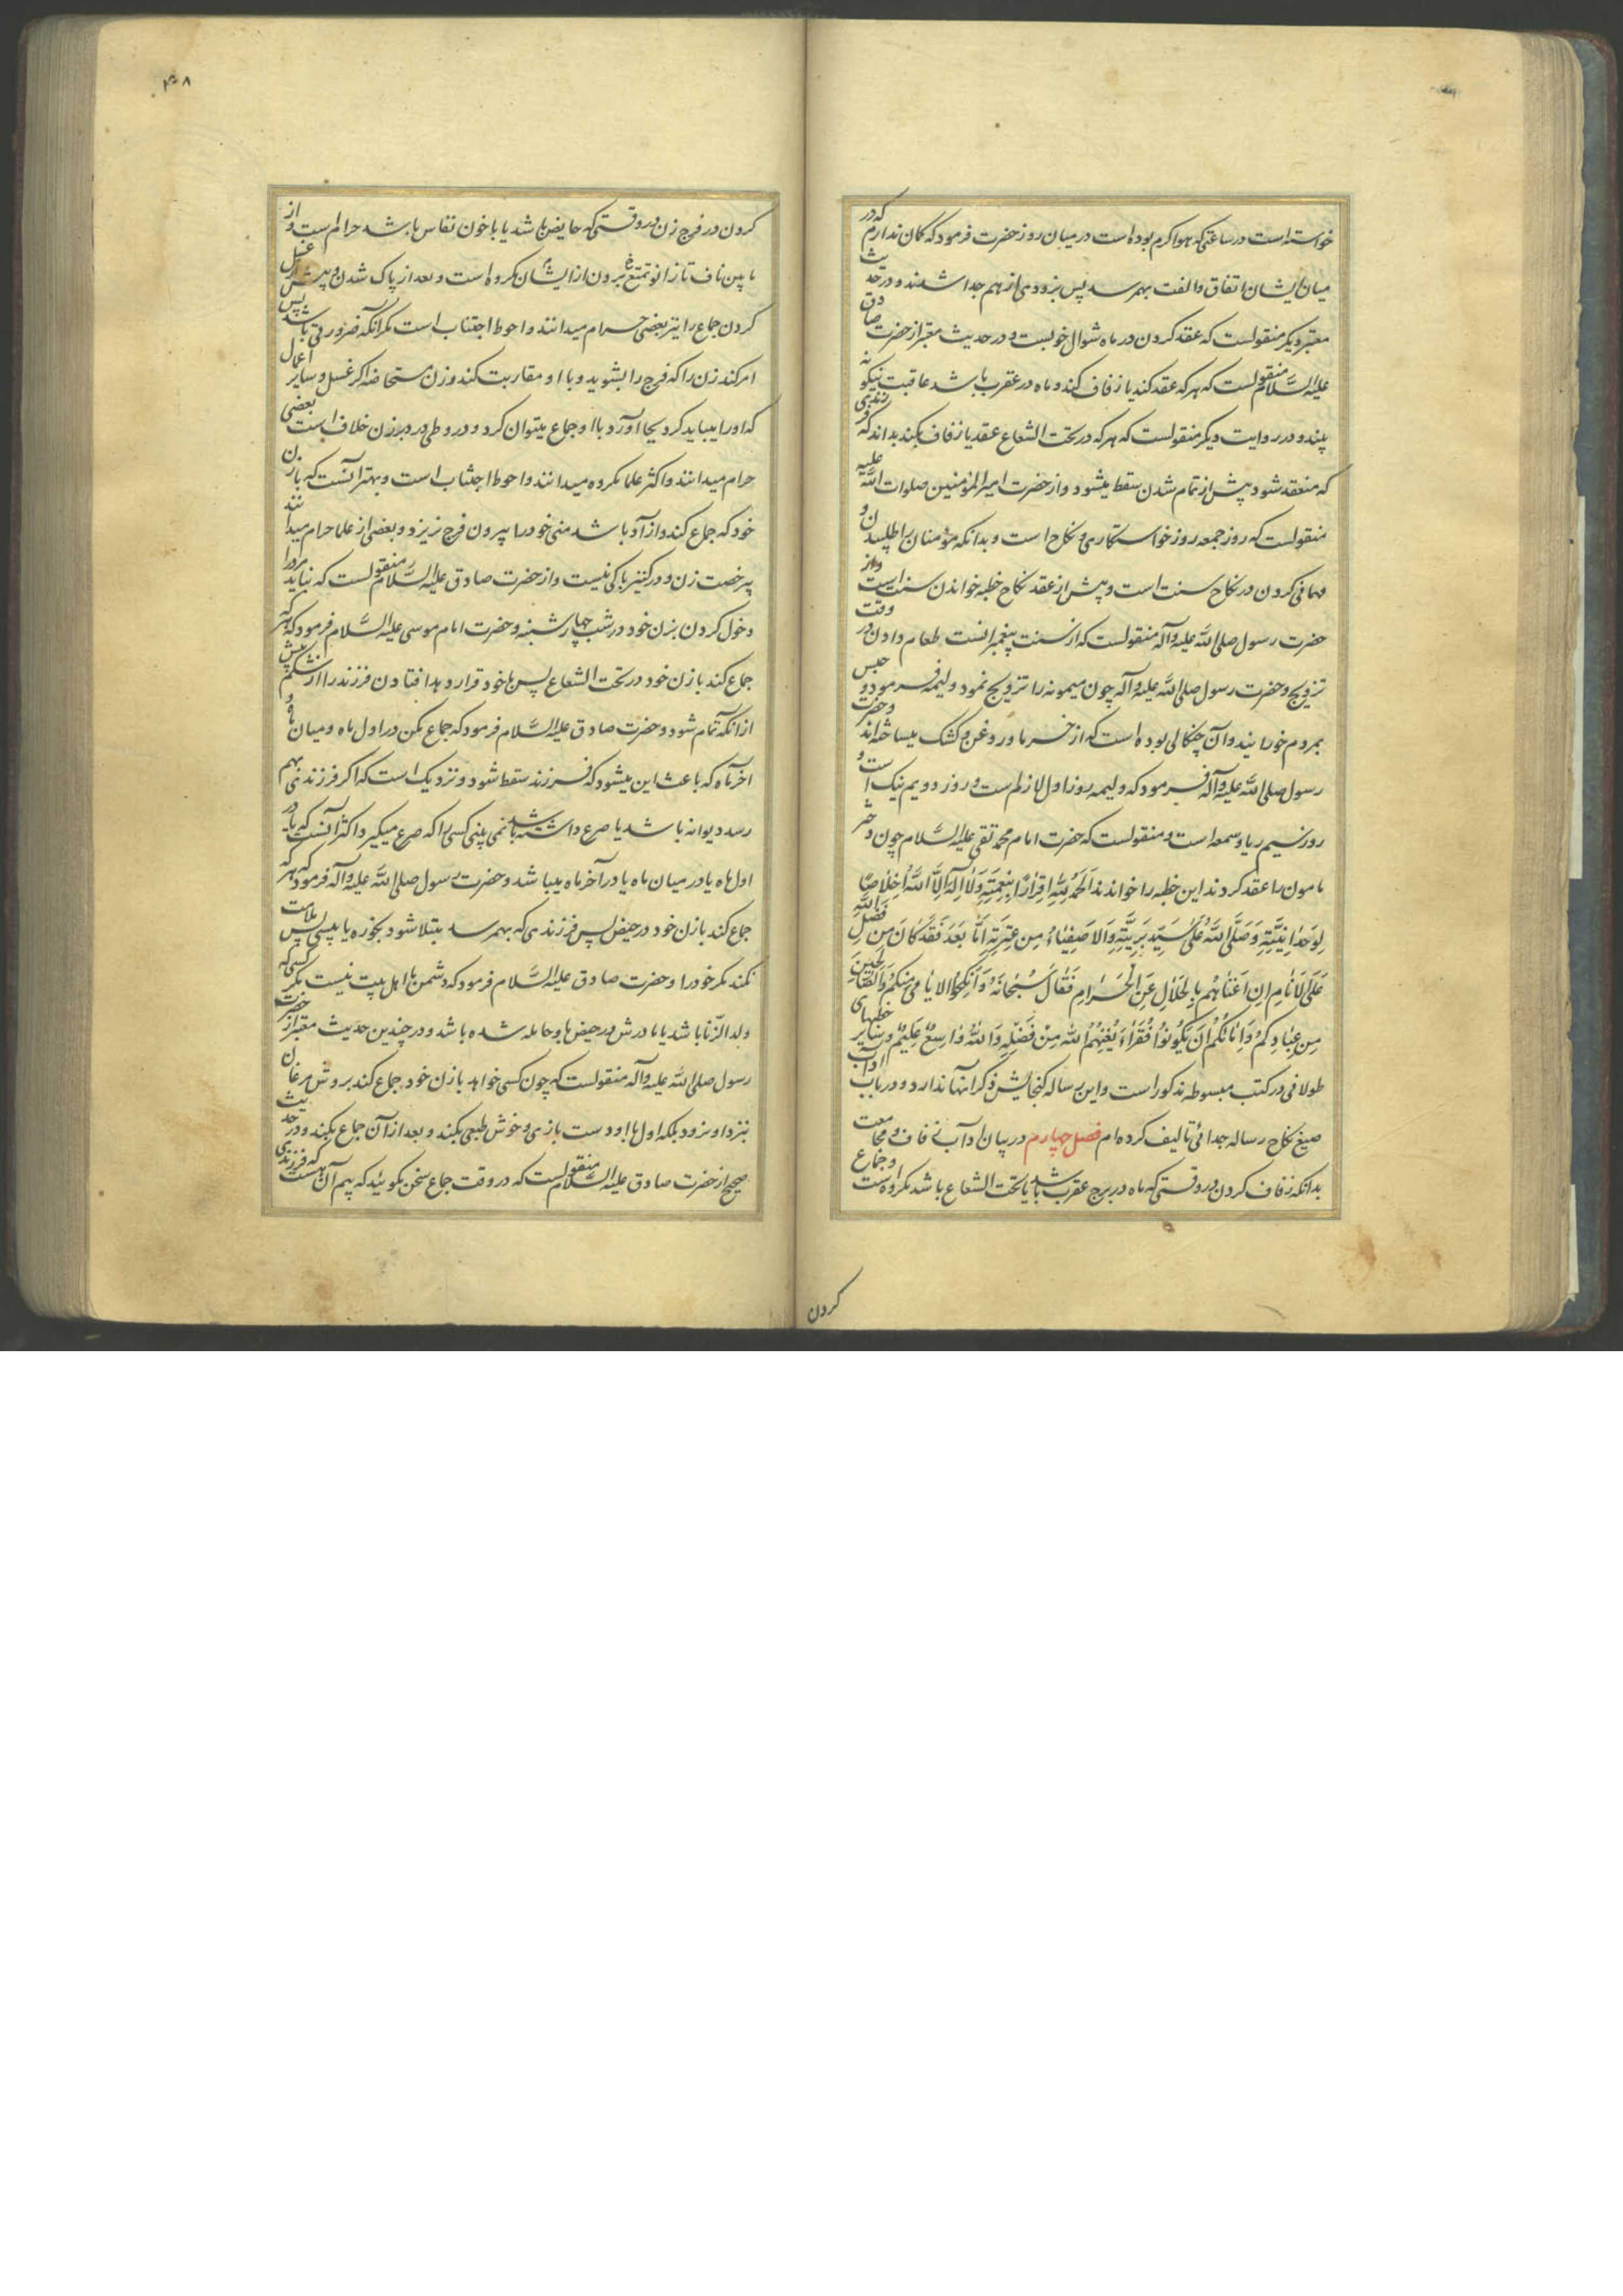 خواسته است در ساعتی که هوا گرم بوده است در میان روز حضرت فرمود که گمان ندارم که در
میان ایشان اتفاق و الفت بهم رسد پس بزودی از هم جدا شدند و در حدیث
معتبر دیگر منقولست که عقد کردن در ماه شوال خوبست و در حدیث معتبر از حضرت صادق
علیه السَّلام منقولست که هر که عقد کند یا زفاف کند و ماه در عقرب باشد عاقبت نیکو نه
بیند و در روایت دیگر منقولست که هر که در تحت الشعاع عقد یا زفاف بکند بداند که فرزندی
که منعقد شود پیش از تمام شدن سقط میشود و از حضرت امیر المؤمنین صلوات الله علیه
منقولست که روز جمعه روز خواستکاری و نکاح است و بدانکه مؤمنان را طلبیدن و
مهمانی کردن در نکاح سنت است و پیش از عقد نکاح خطبه خواندن سنت است و از
حضرت رسول صلی الله علیه وآله منقولست که از سنت پیغمبرانست طعام دادن در وقت
تزویج و حضرت رسول صلی الله علیه وآله چون میمونه را تزویج نمود ولیمه فرمود و حیس
بمردم خورانید و آن چنگالی بوده است که از خرما و روغن و کشک میساخته‌اند و حضرت
رسول صلی الله علیه وآله فرمود که ولیمه روز اول لازمست و روز دویم نیک است و
روز سیم ریا و سمعه است و منقولست که حضرت امام محمد تقی علیه السَّلام چون دختر
مامون را عقد کردند این خطبه را خواندند اَلحَمدُ لِلّهِ اِقرارًا بِنِعمَتِهِ وَلا اِلهَ اِلَّا اللهُ اِخلاصًا
لِوَحدانِیَّتِهِ وَصَلَّی اللهُ عَلی سَیِّدِ بَرِیَّتِهِ وَالاَصفِیاءِ مِن عِترَتِهِ اَمّا بَعدُ فَقَد کانَ مِن فَضلِ اللهِ
عَلَی الاَنامِ اَن اَغناهُم بِالحَلالِ عَنِ الحَرامِ فَقالَ سُبحانَهُ وَاَنکِحُوا الاَیامی مِنکُم وَالصّالِحینَ
مِن عِبادِکُم وَاِمائِکُم اِن یَکُونُوا فُقَراءَ یُغنِهِمُ اللهُ مِن فَضلِهِ وَاللهُ واسِعٌ عَلیمٌ و سایر خطبهای
طولانی در کتب مبسوطه مذکور است و این رساله گنجایش ذکر آنها ندارد و در باب آداب
صیغ نکاح رساله جدائی تالیف کرده‌ام فصل چهارم در بیان آداب زفاف و مجامعت
بدانکه زفاف کردن در وقتی که ماه در برج عقرب باشد یا تحت الشعاع باشد مکروه است و جماع
کردن
۴۰۸
کردن در فرج زن در وقتی که حایض باشد یا با خون نفاس باشد حرام است و از
مابین ناف تا زانو تمتع بردن از ایشان مکروه است و بعد از پاک شدن و پیش از غسل
کردن جماع را نیز بعضی حرام میدانند و احوط اجتناب است مگر آنکه ضرورتی باشد پس
امر کند زن را که فرج را بشوید و با او مقاربت کند و زن مستحاضه اگر غسل و سایر اعمال
که او را میباید کرد بجا آورد با او جماع میتوان کرد و در وطی در دبر زن خلاف است بعضی
حرام میدانند و اکثر علما مکروه میدانند و احوط اجتناب است و بهتر آنست که با زن
خود که جماع کند و آزاد باشد منی خود را بیرون فرج نریزد و بعضی از علما حرام میدانند
بی رخصت زن و در کنیز باکی نیست و از حضرت صادق علیه السَّلام منقولست که نباید مرد را
دخول کردن بزن خود در شب چهارشنبه و حضرت امام موسی علیه السَّلام فرمود که هر که
جماع کند با زن خود در تحت الشعاع پس با خود قرار دهد افتادن فرزند را از شکم پیش
از آنکه تمام شود و حضرت صادق علیه السَّلام فرمود که جماع مکن در اول ماه و میان ماه و
آخر ماه که باعث این میشود که فرزند سقط شود و نزدیک است که اگر فرزندی بهم
رسد دیوانه باشد یا صرع داشته باشد نمی بینی کسی را که صرع میگیرد اکثر آنست که یا در
اول ماه یا در میان ماه یا در آخر ماه میباشد و حضرت رسول صلی الله علیه وآله فرمود که هر که
جماع کند با زن خود در حیض پس فرزندی که بهم رسد مبتلا شود بخوره یا پیسی پس ملامت
نکند مگر خود را و حضرت صادق علیه السَّلام فرمود که دشمن ما اهل بیت نیست مگر کسی که
ولد الزّنا باشد یا مادرش در حیض باو حامله شده باشد و در چندین حدیث معتبر از حضرت
رسول صلی الله علیه وآله منقولست که چون کسی خواهد با زن خود جماع کند بروش مرغان
نزد او نرود بلکه اول با او دست بازی و خوش طبعی بکند و بعد از آن جماع بکند و در حدیث
صحیح از حضرت صادق علیه السَّلام منقولست که در وقت جماع سخن مگوئید که بیم آن هست که فرزندی